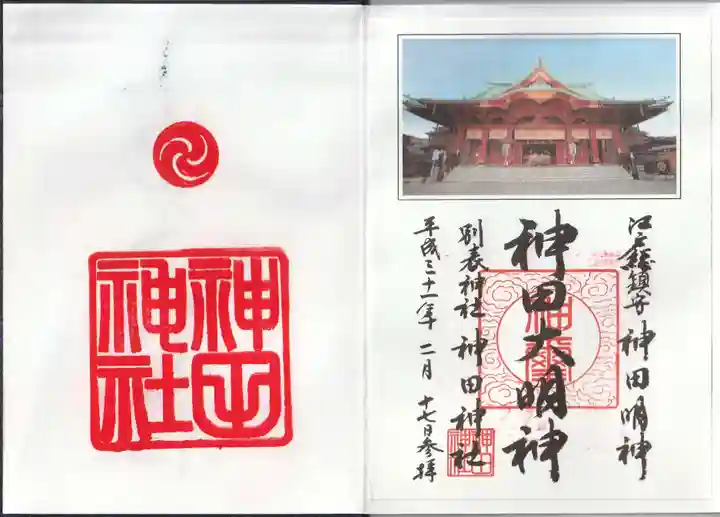 神田
神社
江戸総鎮守 神田明神
神田大明神
別表神社 神田神社
神田
神社
平成三十一年 二月 十七日参拝